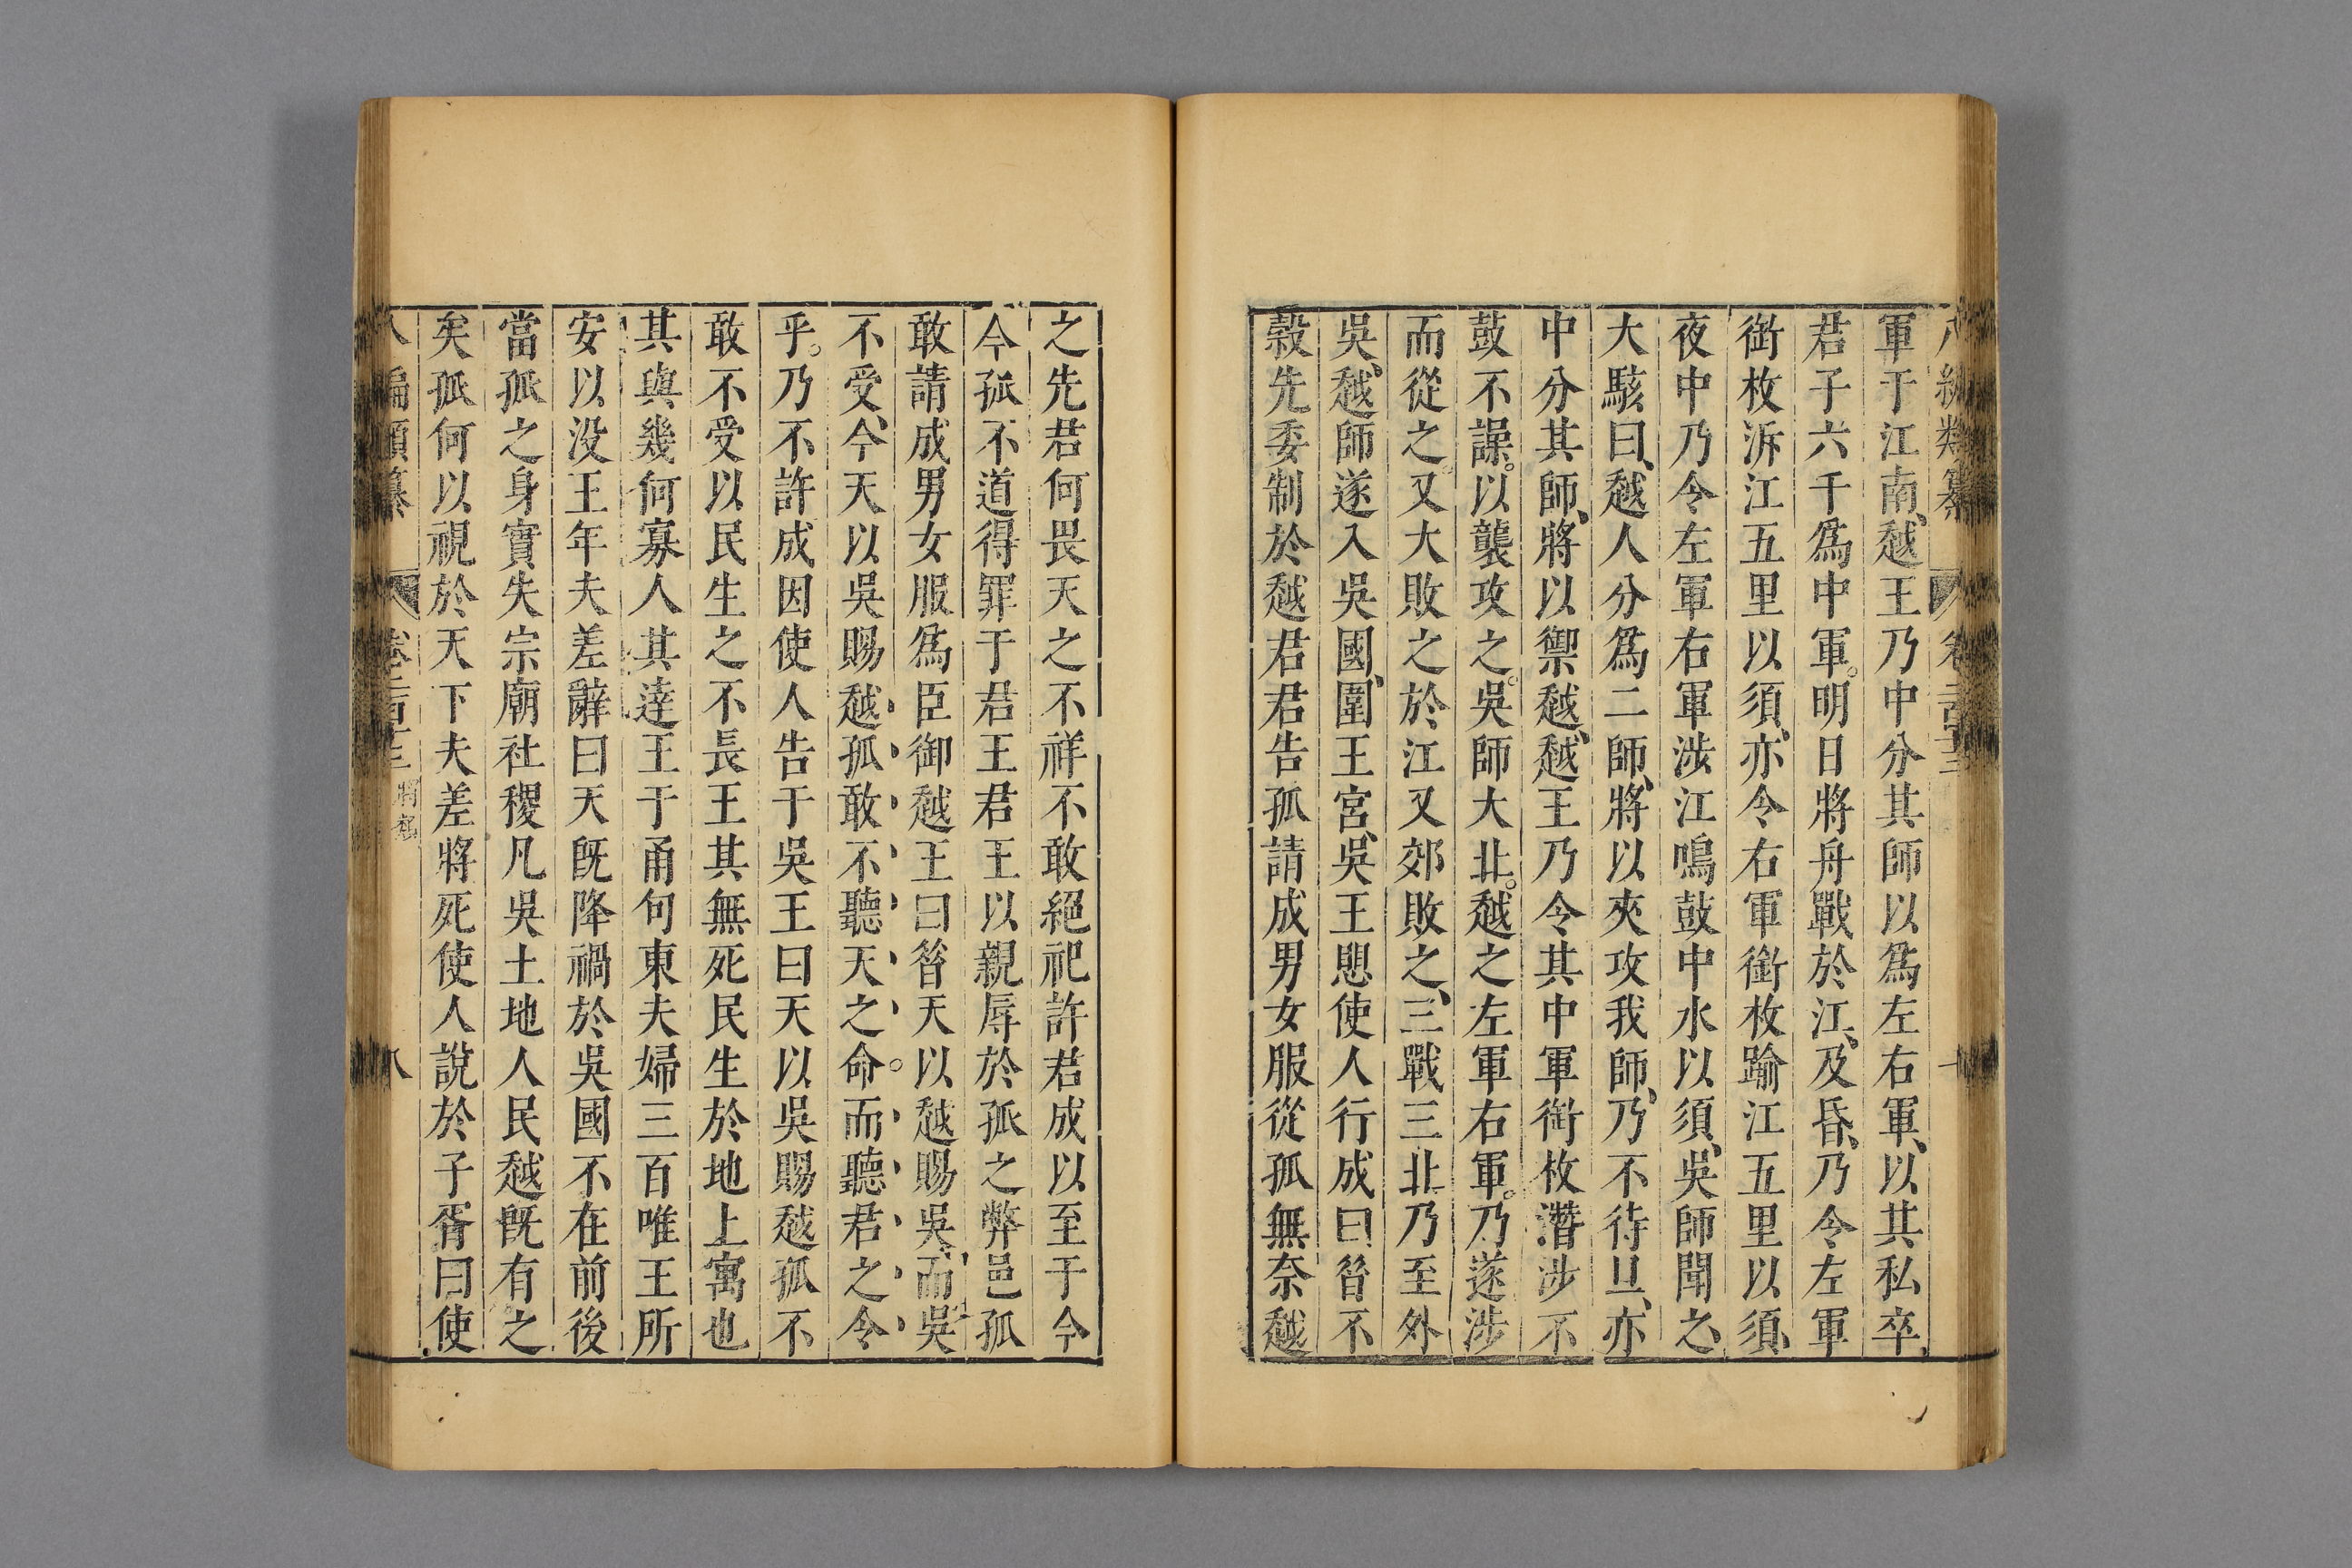 軍于江南、越王乃中分其師以爲左右軍、以其私卒
君子六千爲中軍。明日將舟戰於江、及昏、乃令左軍
銜枚泝江五里以須、亦令右軍銜枚踰江五里以須、
夜中乃令左軍右軍涉江鳴鼓中水以須、吳師聞之、
大駭曰、越人分爲二師、將以夾攻我師、乃不待旦、亦
中分其師、將以禦越、越王乃令其中軍銜枚潛涉不
鼓不譟。以襲攻之。吳師大北。越之左軍右軍。乃遂涉
而從之。又大敗之於江又郊敗之、三戰三北乃至外
吳、越師遂入吳國、圍王宮、吳王懼使人行成曰昔不
穀先委制於越君君告孤請成男女服從孤無奈越
之先君何畏天之不祥不敢絕祀許君成以至于今
今孤不道得罪于君王君王以親辱於孤之弊邑孤
敢請成男女服爲臣御越王曰昔天以越賜吳、而吳
不受、今天以吳賜越孤敢不聽天之命。而聽君之令
乎。乃不許成因使人告于吳王曰天以吳賜越孤不
敢不受以民生之不長王其無死民生於地上寓也
其與幾何寡人其達王于甬句東夫婦三百唯王所
安以没王年夫差辭曰天旣降禍於吳國不在前後
當孤之身實失宗廟社稷凡吳土地人民越旣有之
矣孤何以視於天下夫差將死使人說於子胥曰使
八編類纂 八